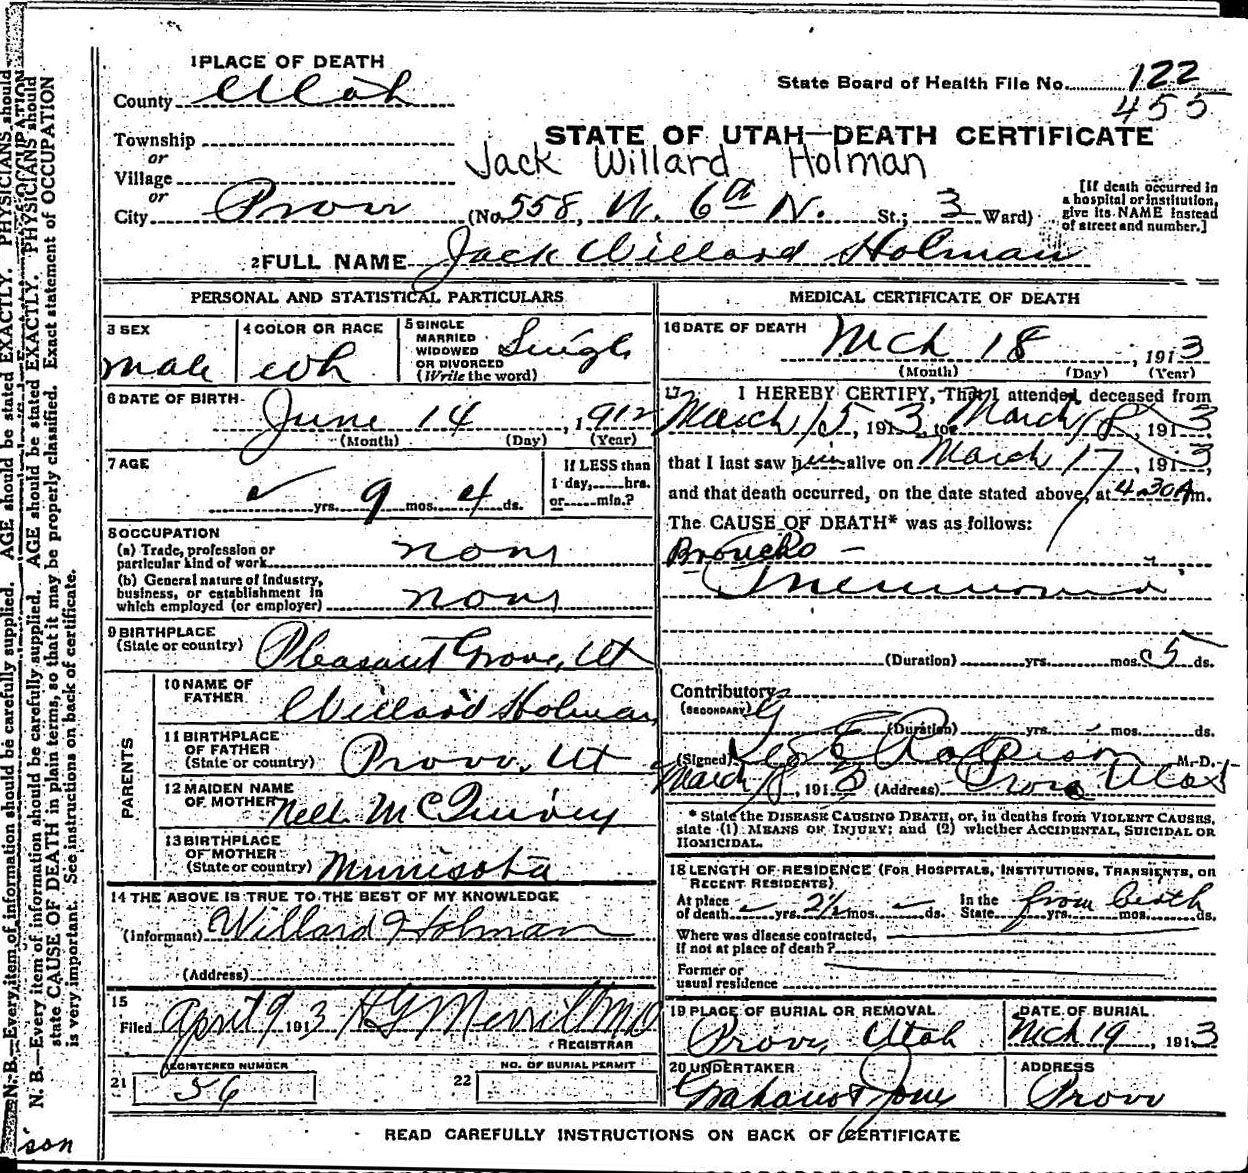 1 PLACE OF DEATH
County Utah
State Board of Health File No. 122
455
Township
or
Village
or
STATE OF UTAH—DEATH CERTIFICATE
Jack Willard Holman
City Provo (No. 558, W. 6th N. St.; 3 Ward)
[If death occurred in
a hospital or institution,
give its NAME instead
of street and number.]
2 FULL NAME Jack Willard Holman
PERSONAL AND STATISTICAL PARTICULARS
3 SEX
male
4 COLOR OR RACE
wh
5 SINGLE
MARRIED
WIDOWED
OR DIVORCED
(Write the word)
Single
6 DATE OF BIRTH
June 14, 1912
(Month) (Day) (Year)
7 AGE
yrs. 9 mos. 4 ds.
If LESS than
1 day, hrs.
or min.?
8 OCCUPATION
(a) Trade, profession or
particular kind of work none
(b) General nature of industry,
business, or establishment in
which employed (or employer) none
9 BIRTHPLACE
(State or country) Pleasant Grove, Ut
PARENTS
10 NAME OF
FATHER Willard Holman
11 BIRTHPLACE
OF FATHER
(State or country) Provo, Ut
12 MAIDEN NAME
OF MOTHER Nell McQuivey
13 BIRTHPLACE
OF MOTHER
(State or country) Minnisota
14 THE ABOVE IS TRUE TO THE BEST OF MY KNOWLEDGE
(Informant) Willard Holman
(Address)
15
Filed April 9 1913 H G Merrill MD
REGISTRAR
21 REGISTERED NUMBER
56
22 NO. OF BURIAL PERMIT
MEDICAL CERTIFICATE OF DEATH
16 DATE OF DEATH
Mch 18, 1913
(Month) (Day) (Year)
17 I HEREBY CERTIFY, That I attended deceased from
March 15, 1913, to March 18, 1913,
that I last saw him alive on March 17, 1913,
and that death occurred, on the date stated above, at 4.30 A m.
The CAUSE OF DEATH* was as follows:
Broncho -
Pneumonia
(Duration) yrs. mos. 5 ds.
Contributory
(SECONDARY)
(Duration) yrs. mos. ds.
(Signed) M. D.
March 18, 1913 (Address) Provo Utah
* State the DISEASE CAUSING DEATH, or, in deaths from VIOLENT CAUSES,
state (1) MEANS OF INJURY; and (2) whether ACCIDENTAL, SUICIDAL OR
HOMICIDAL.
18 LENGTH OF RESIDENCE (FOR HOSPITALS, INSTITUTIONS, TRANSIENTS, OR
RECENT RESIDENTS)
At place
of death yrs. 2½ mos. ds. In the
State from birth yrs. mos. ds.
Where was disease contracted,
if not at place of death?
Former or
usual residence
19 PLACE OF BURIAL OR REMOVAL
Provo, Utah
DATE OF BURIAL
Mch 19, 1913
20 UNDERTAKER
ADDRESS
Provo
READ CAREFULLY INSTRUCTIONS ON BACK OF CERTIFICATE
N. B.—Every item of information should be carefully supplied. AGE should be stated EXACTLY. PHYSICIANS should
state CAUSE OF DEATH in plain terms, so that it may be properly classified. Exact statement of OCCUPATION
is very important. See instructions on back of certificate.